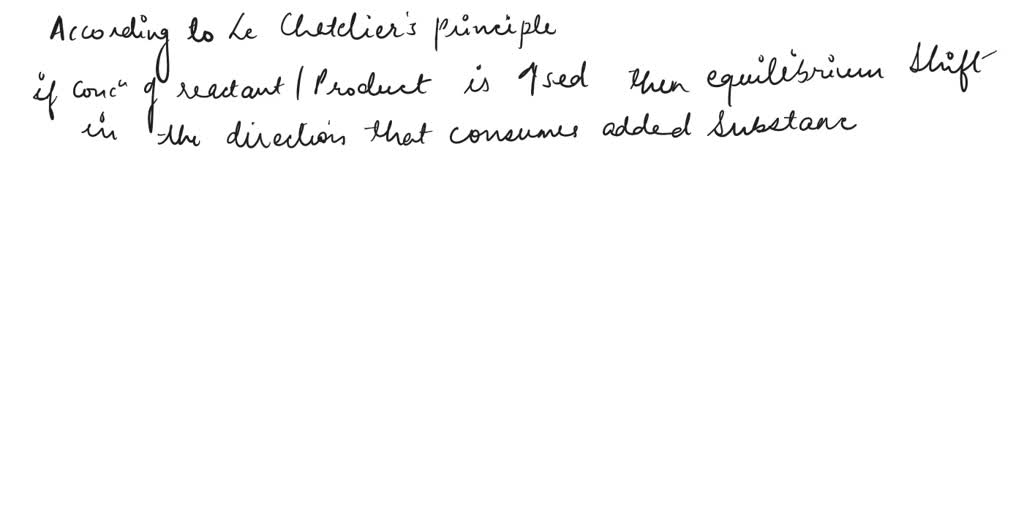 According to Le Chetelier's principle
if concⁿ of reactant / Product is ↑sed then equilibrium shift
in the direction that consumes added Substanc